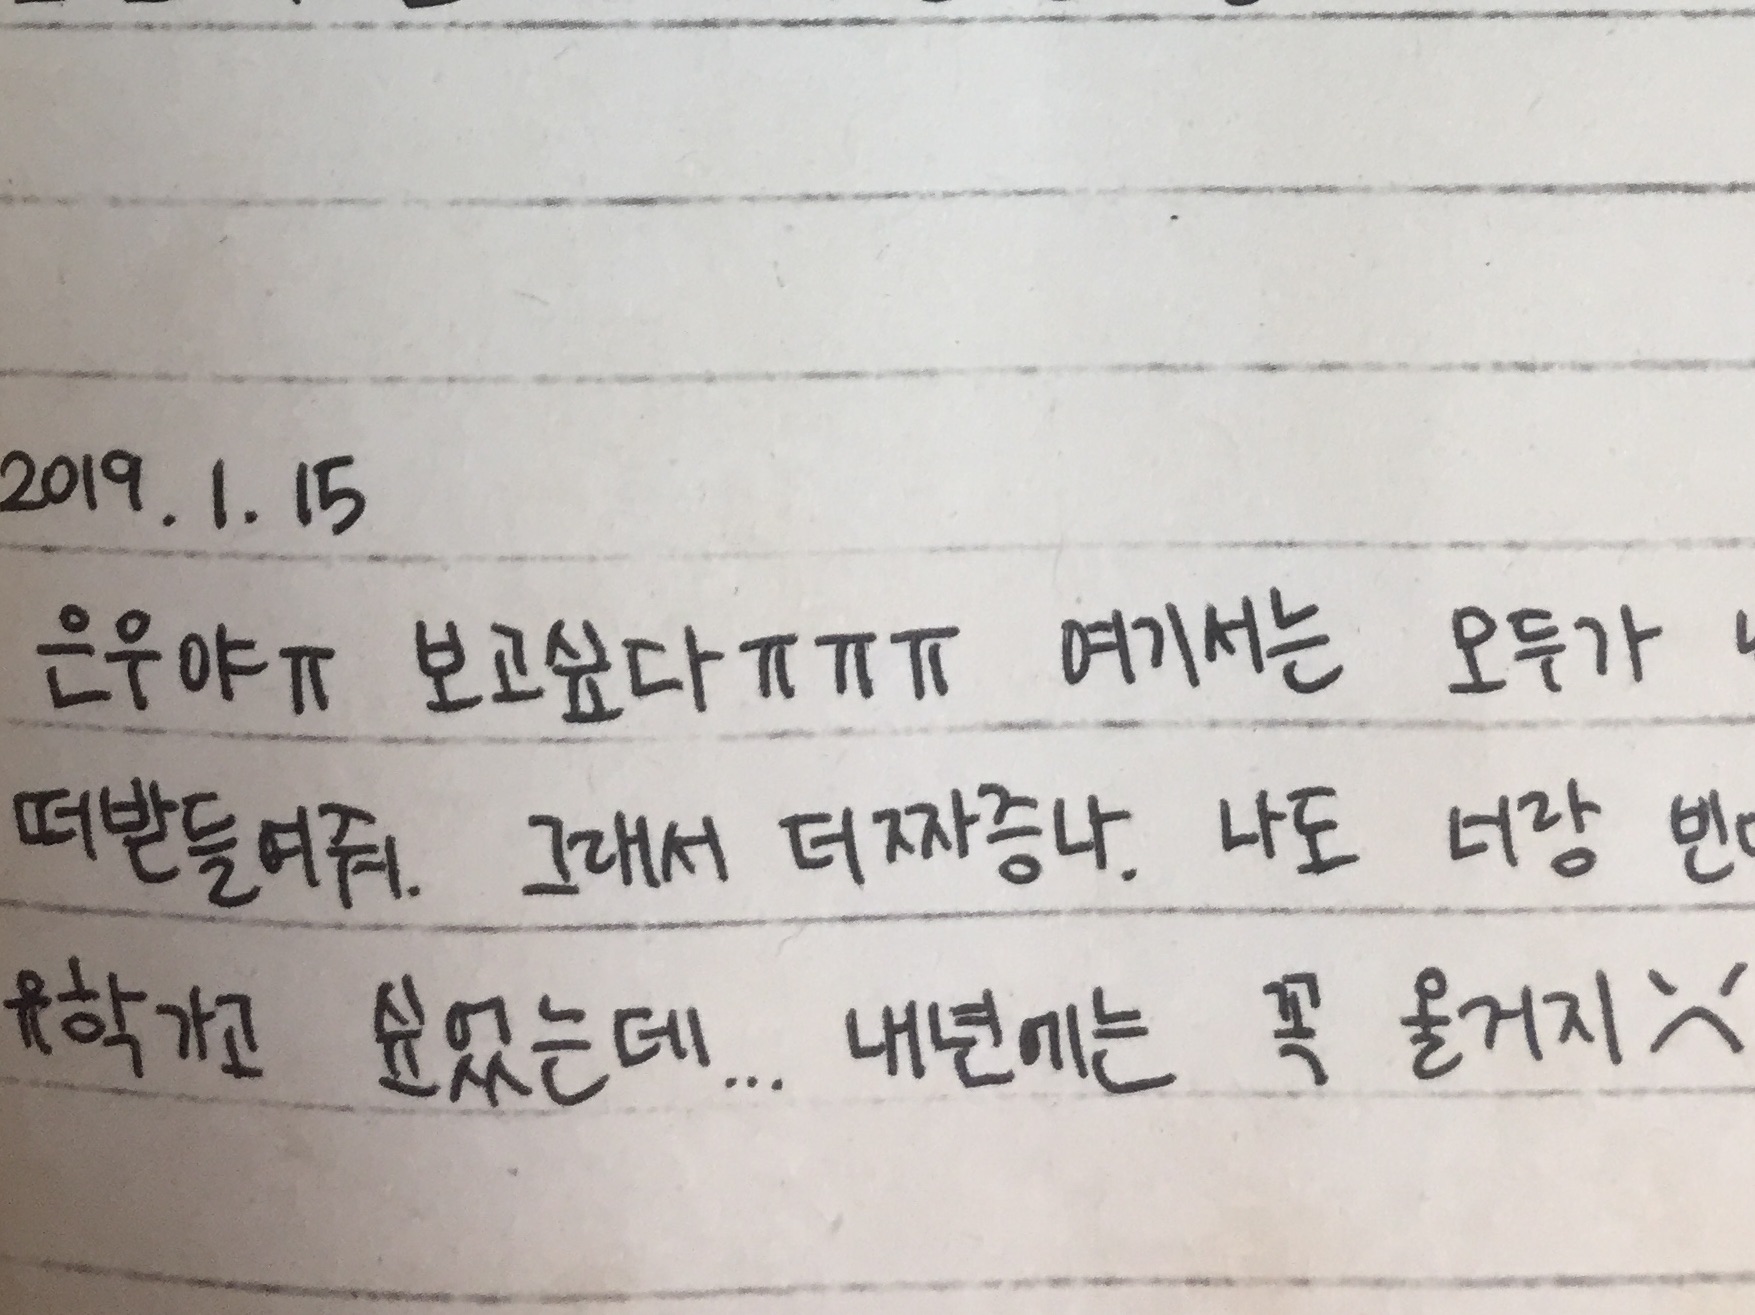 2019. 1. 15
은우야ㅠ 보고싶다ㅠㅠㅠ 여기서는 모두가
떠받들어줘. 그래서 더 짜증나. 나도 너랑
유학가고 싶었는데... 내년에는 꼭 올거지